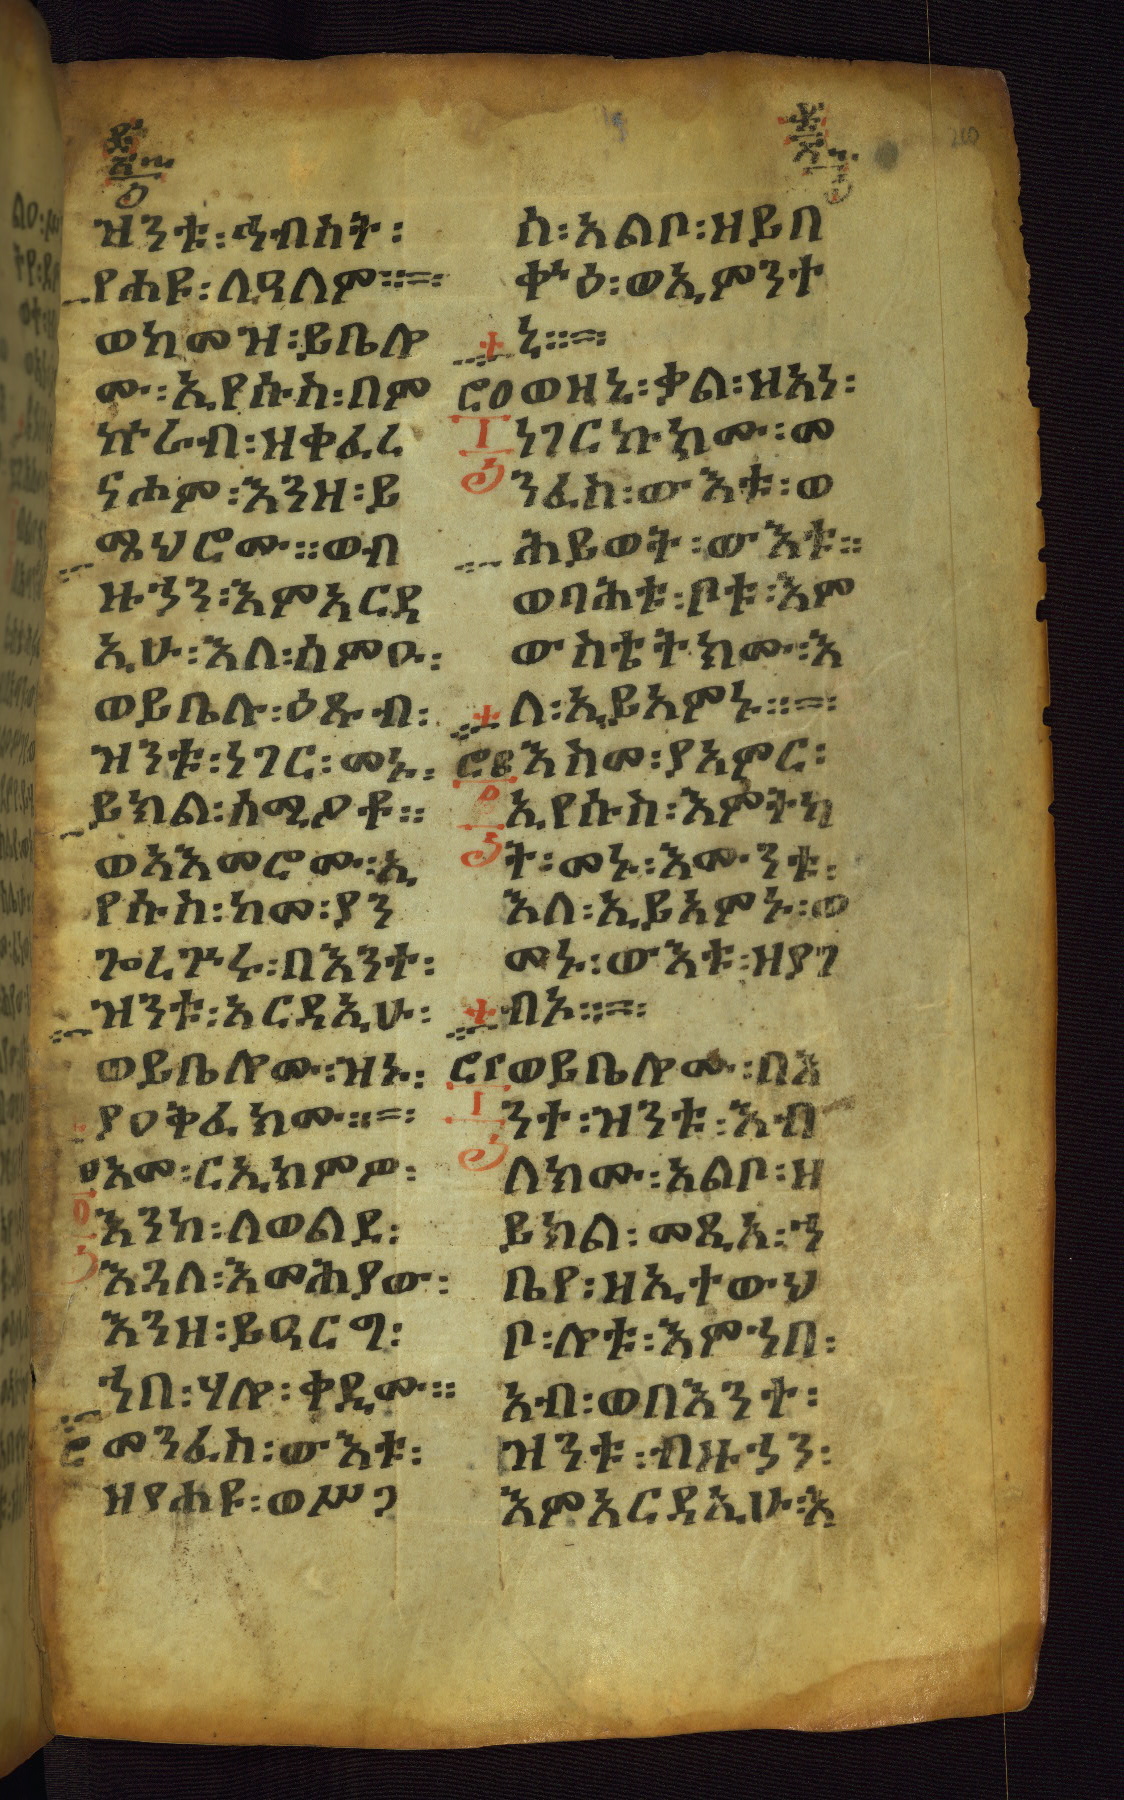 ዝንቱ፡ኅብስት፡
የሐዩ፡ለዓለም።
ወከመዝ፡ይቤሎ
ሙ፡ኢየሱስ፡በም
ኵራብ፡ዝቀፈረ
ናሐም፡እንዘ፡ይ
ሜህሮሙ።ወብ
ዙኃን፡እምአርዳ
ኢሁ፡እለ፡ሰምዑ፡
ወይቤሉ፡ዕጹብ፡
ዝንቱ፡ነገር፡መኑ፡
ይክል፡ሰሚዖቶ።
ወአእመሮሙ፡ኢ
የሱስ፡ከመ፡ያን
ጐረጕሩ፡በእንተ፡
ዝንቱ፡አርዳኢሁ፡
ወይቤሎሙ፡ዝኑ፡
ያዐቅፈክሙ።
እመ፡ርኢክምዎ፡
እንከ፡ለወልደ፡
እጓለ፡እመሕያው፡
እንዘ፡ይዓርግ፡
ኀበ፡ሃሎ፡ቀዲሙ።
መንፈስ፡ውእቱ፡
ዘየሐዩ፡ወሥጋ
ሰ፡አልቦ፡ዘይበ
ቍዕ፡ወኢምንተ
ኒ።
ወዘኒ፡ቃል፡ዝአነ፡
ነገርኩክሙ፡መ
ንፈስ፡ውእቱ፡ወ
ሕይወት፡ውእቱ።
ወባሕቱ፡ቦቱ፡እም
ውስቴትክሙ፡እ
ለ፡ኢይአምኑ።
እስመ፡ያአምር፡
ኢየሱስ፡እምትካ
ት፡መኑ፡እሙንቱ፡
እለ፡ኢይአምኑ፡ወ
መኑ፡ውእቱ፡ዘያገ
ብኦ።
ወይቤሎሙ፡በእ
ንተ፡ዝንቱ፡እብ
ለክሙ፡አልቦ፡ዘ
ይክል፡መጺአ፡ኀ
ቤየ፡ዘኢተውህ
ቦ፡ሎቱ፡እምኀበ፡
አብ፡ወበእንተ፡
ዝንቱ፡ብዙኃን፡
እምአርዳኢሁ፡እ